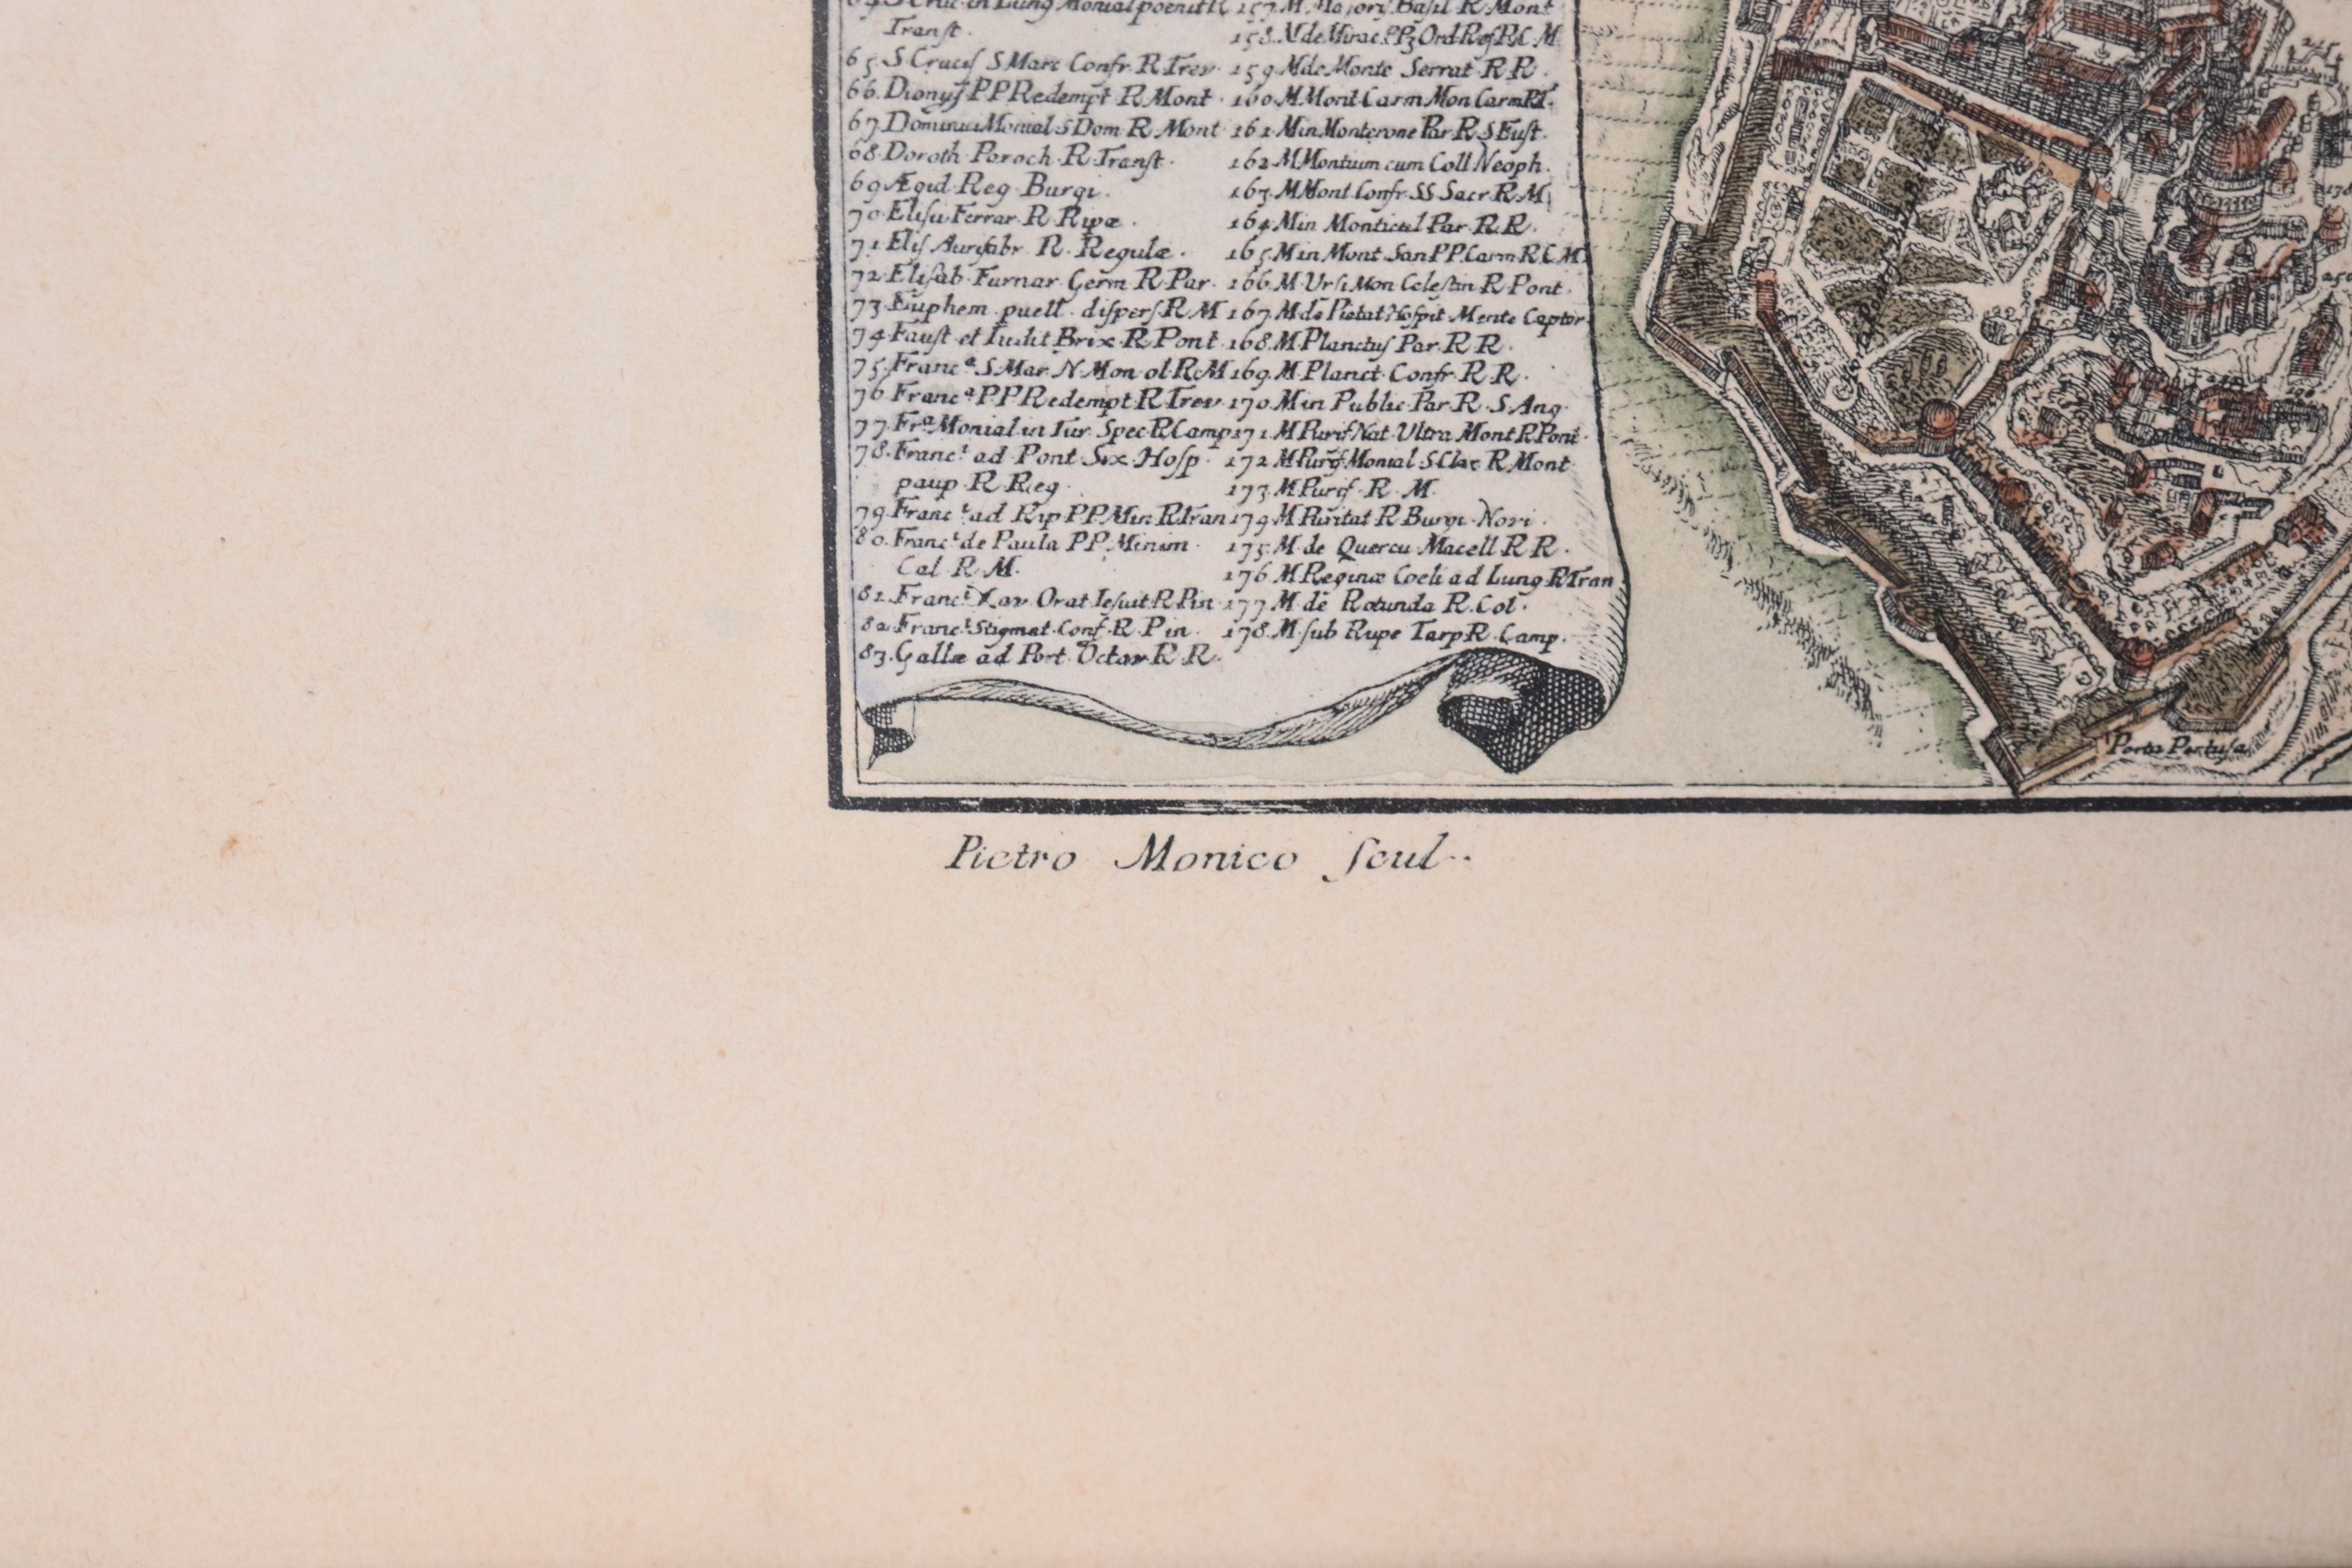 Transt.
65. S Crucis S Marc Confr. R Trev.
66. Dionys P P Redempt R Mont.
67. Dominici Monial S Dom R Mont
68. Doroth Paroch R Transt.
69. Ægid Reg Burgi.
70. Elisu Ferrar R Ripæ.
71. Elis Aurifabr R. Regulæ.
72. Elisab Furnar Germ R Par.
73. Euphem puell. dispers R M
74. Faust et Iudit Brix R Pont.
75. Franc.ª S Mar N Mon ol R C M
76. Franc.ª P P Redempt R Trev
77. Fr.ª Monial in Tur Spec R Camp
78. Franc.ⁱ ad Pont Six Hosp.
paup R Reg.
79. Franc.ⁱ ad Rip P P Min R Tran
80. Franc.ⁱ de Paula P P Minim.
Cal R M.
81. Franc.ⁱ Xav Orat Iesuit R Pin
82. Franc.ⁱ Stigmat Conf. R Pin.
83. Gallæ ad Port Octav R R.
157. M Majori Basil R Mont
158. M de Mirac
159. M de Monte Serrat R R.
160. M Mont Carm Mon Carm
161. M in Monterone Par R S Eust.
162. M Montium cum Coll Neoph.
163. M Mont Confr SS Sacr R M
164. M in Monticel Par R R.
165. M in Mont San P P Carm R C M
166. M Ursi Mon Celestin R Pont.
167. M de Pietat Hospit Mente Captor
168. M Planctus Par R R.
169. M Planct Confr R R.
170. M in Public Par R S Ang
171. M Purif Nat Ultra Mont R Pont
172. M Purif Monial S Clar R Mont
173. M Purif R M.
179. M Puritat R Burgi Novi.
175. M de Quercu Macell R R.
176. M Reginæ Coeli ad Lung R Tran
177. M de Rotunda R. Col.
178. M sub Rupe Tarp R Camp.
178
Porta Pertusa
Pietro Monico Scul..